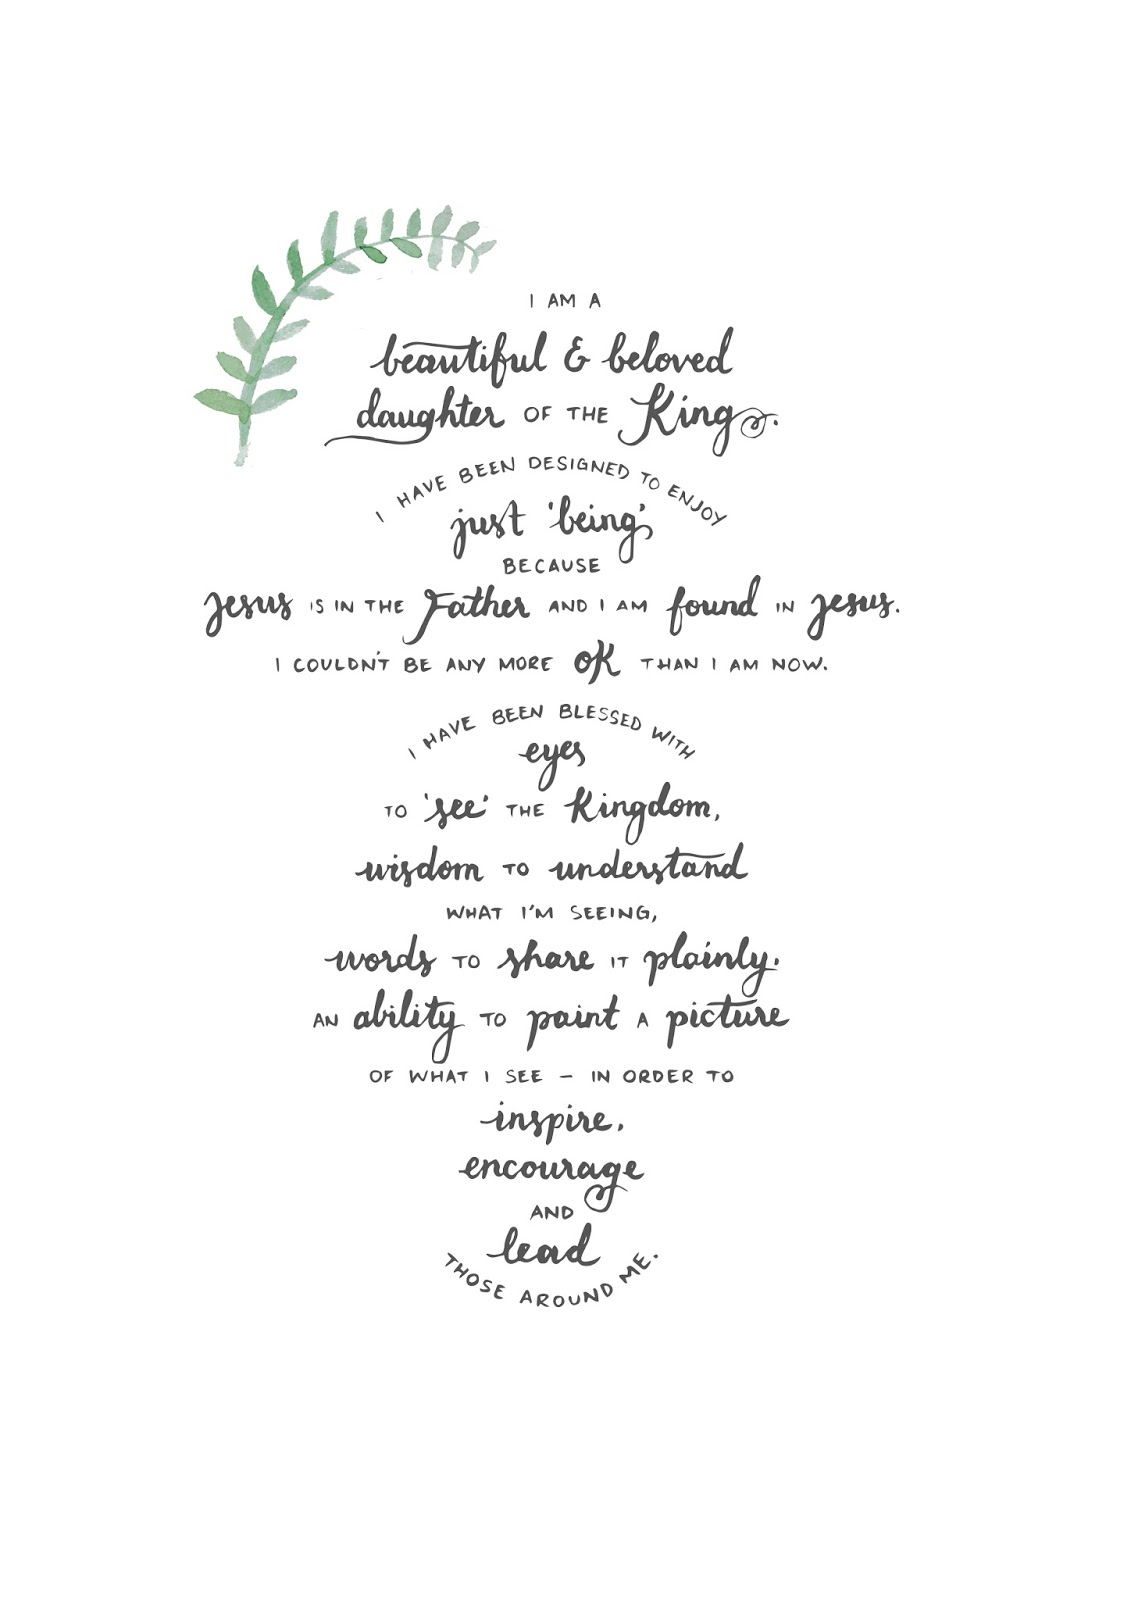 I AM A
beautiful & beloved
daughter OF THE King.
I HAVE BEEN DESIGNED TO ENJOY
just 'being'
BECAUSE
Jesus IS IN THE Father AND I AM found IN Jesus.
I COULDN'T BE ANY MORE OK THAN I AM NOW.
I HAVE BEEN BLESSED WITH
eyes
TO 'see' THE Kingdom,
wisdom TO understand
WHAT I'M SEEING,
words TO share IT plainly.
AN ability TO paint A picture
OF WHAT I SEE – IN ORDER TO
inspire,
encourage
AND
lead
THOSE AROUND ME.